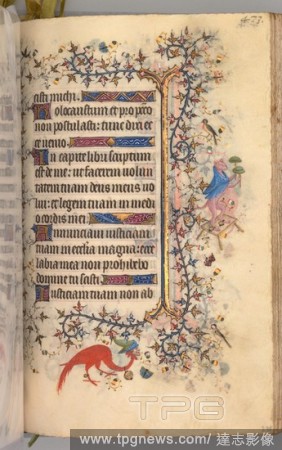 cisti michi.
Holocaustum et pro pec
non postulasti: tunc dixi ec
ce uenio.
In capite libri scriptum
est de me: ut facerem uolun
tatem tuam deus meus uo
lui: et legem tuam in medi
o cordis mei.
Annunciaui iusticiam
tuam in ecclesia magna: ecce
labia mea non prohibebo
domine tu scisti.
Iusticiam tuam non ab
TPG
www.tpgnews.com/達志影像